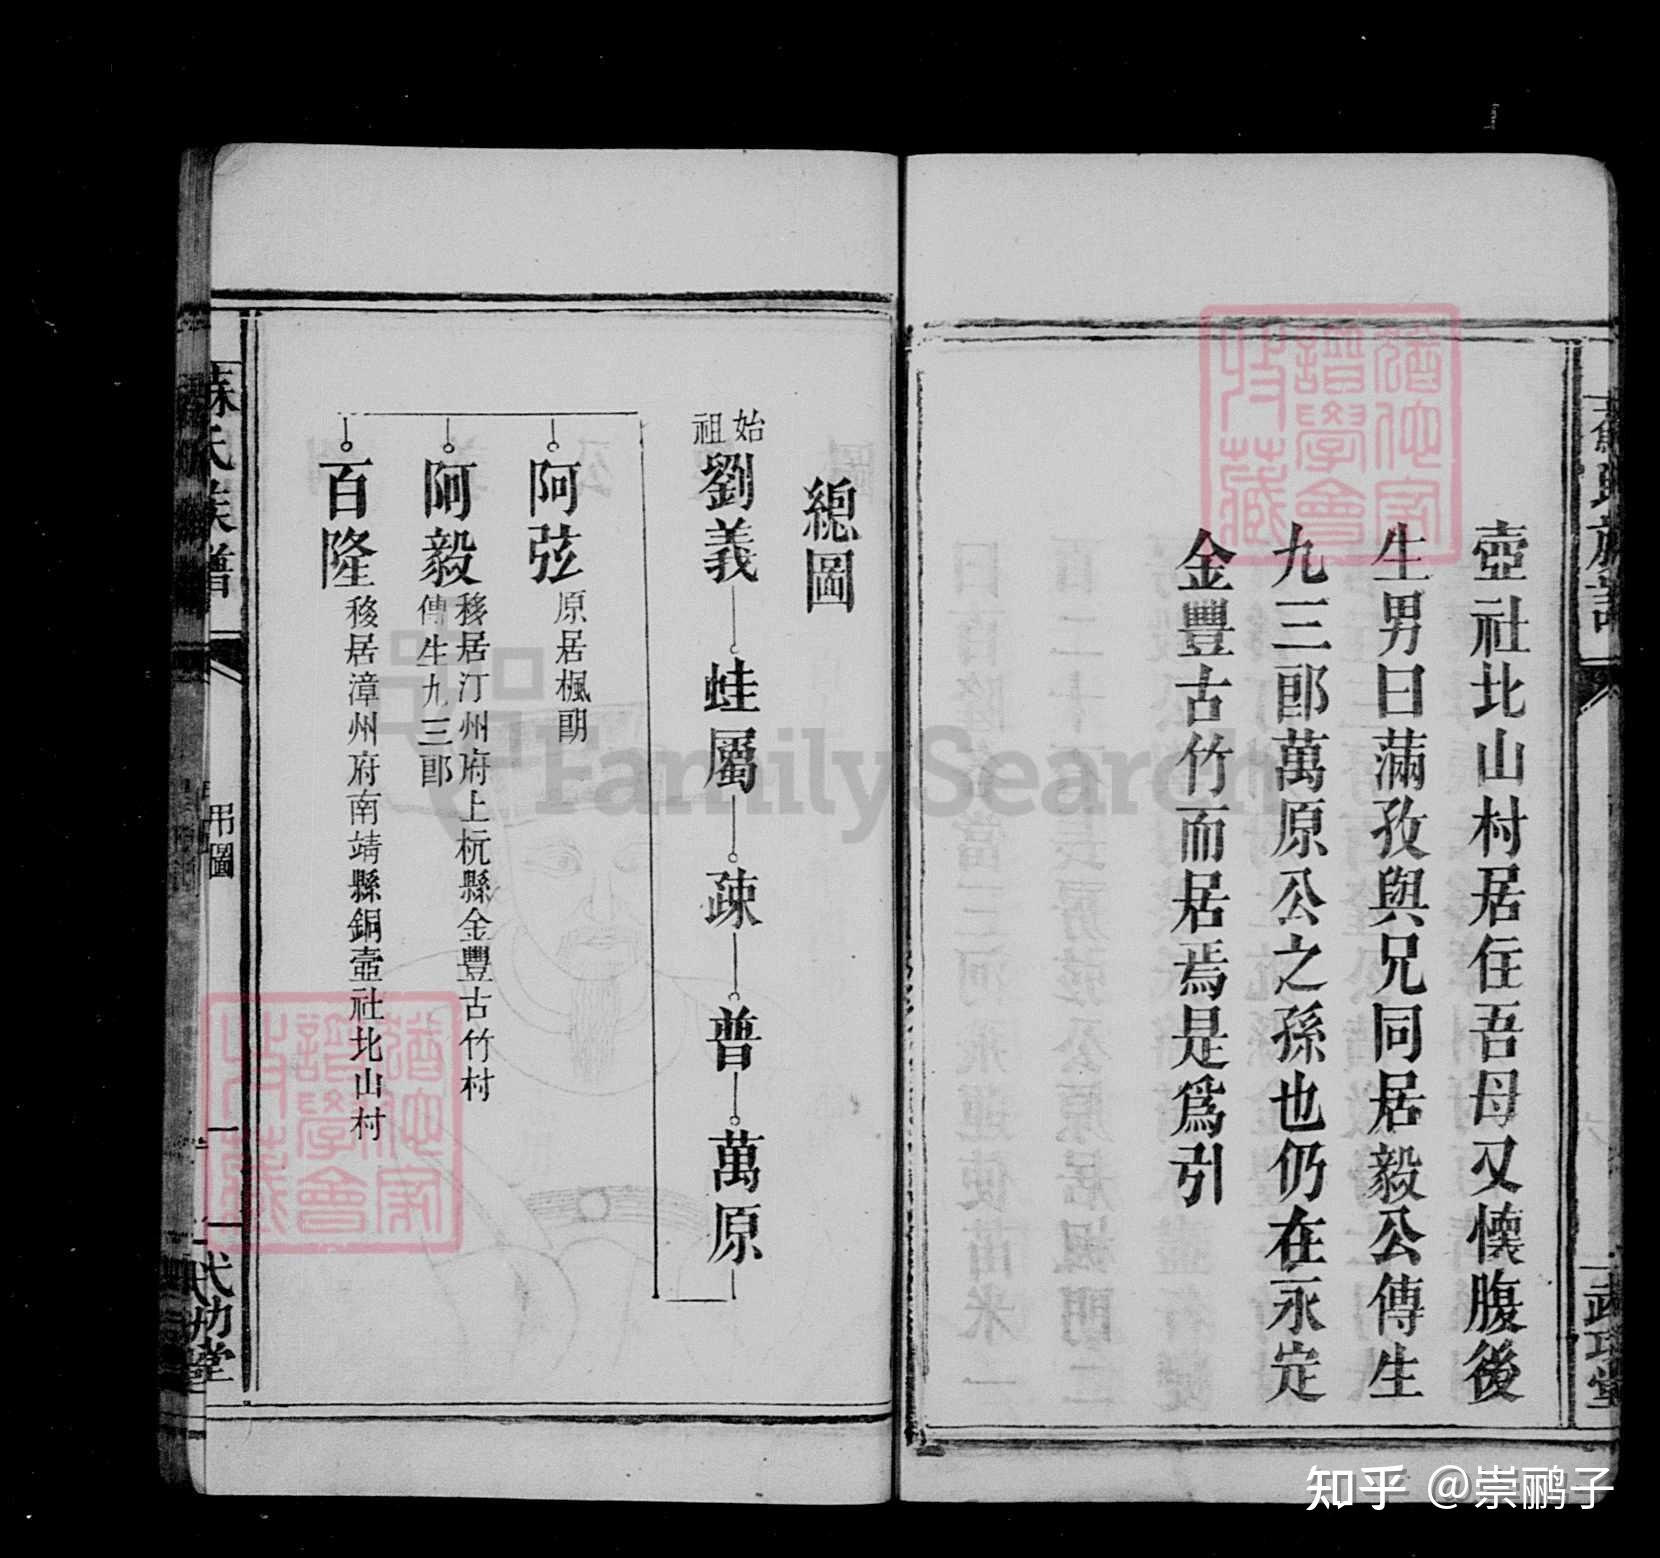 壺社北山村居住吾母又懷腹後
生男曰滿孜與兄同居毅公傳生
九三郎萬原公之孫也仍在永定
金豐古竹而居焉是爲引
武功堂
總圖
始祖
劉義
蛙屬
疎
普
萬原
阿弦
原居楓朗
阿毅
移居汀州府上杭縣金豐古竹村
傳生九三郎
百隆
移居漳州府南靖縣銅壺社北山村
蘇氏族譜
吊圖
一
武功堂
猶他家
譜學會
收藏
猶他家
譜學會
收藏
FamilySearch
知乎 @崇鹂子